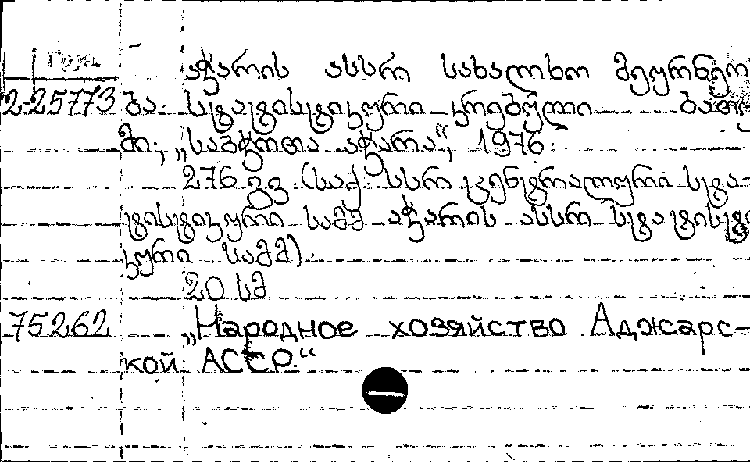 აჭარის ასსრ სახალხო მეურნეო
2-25773 ბა. სტატისტიკური კრებული ბათუ
მი, „საბჭოთა აჭარა“, 1976.
276 გვ. (საქ. სსრ ცენტრალური სტა-
ტისტიკური სამმ აჭარის ასსრ სტატისტი
კური სამმ).
20 სმ
75262 „Народное хозяйство Аджарс-
кой АССР.“